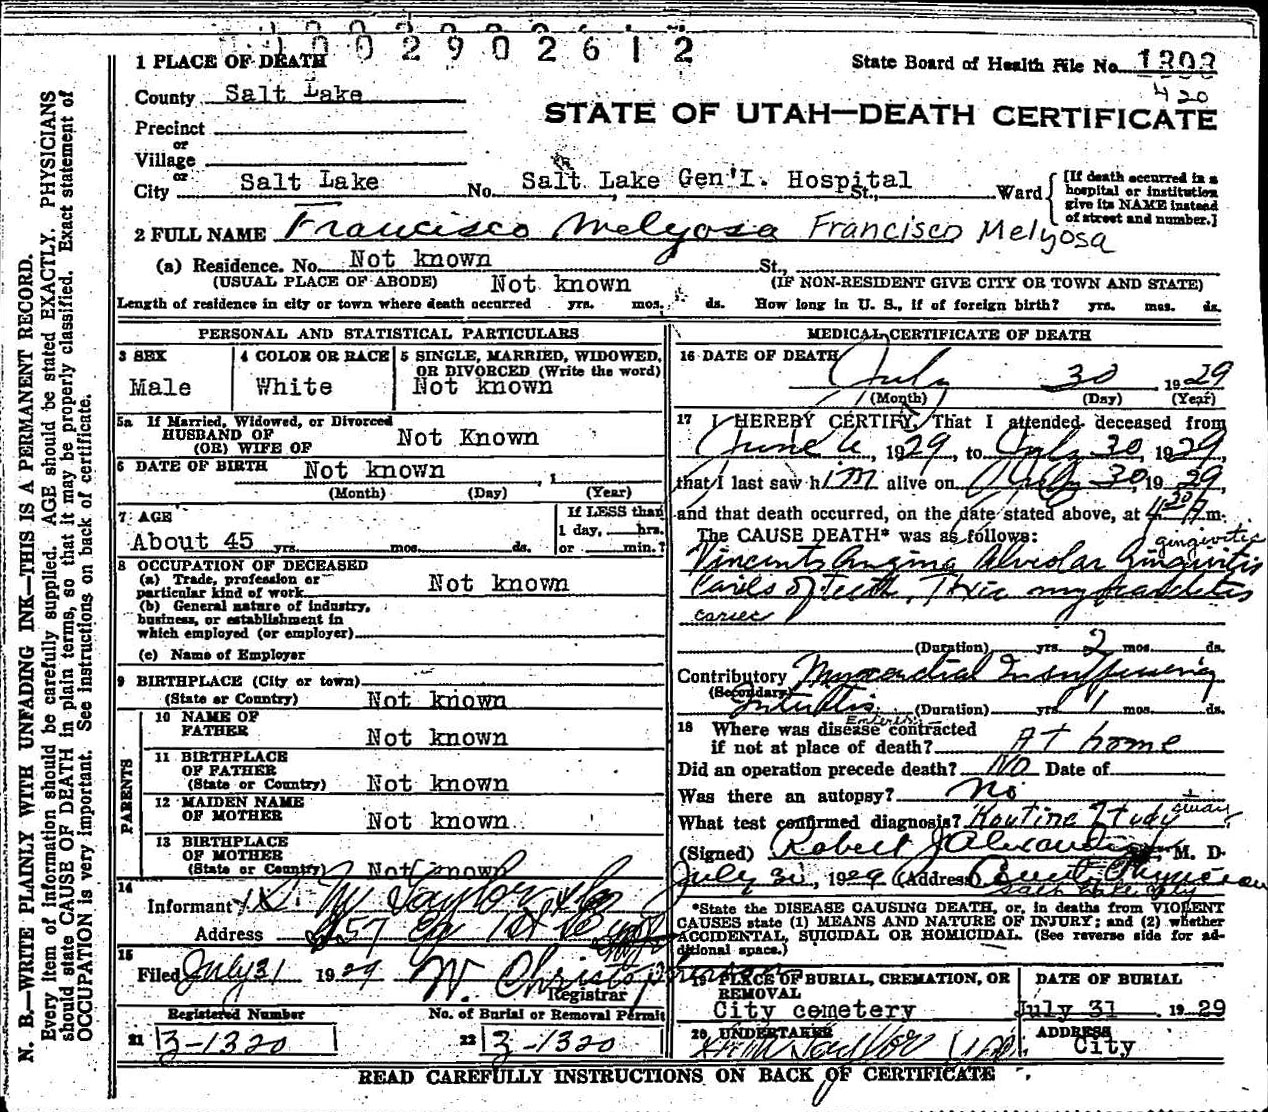 1002902612
1 PLACE OF DEATH
State Board of Health File No. 1303
420
County Salt Lake
STATE OF UTAH—DEATH CERTIFICATE
Precinct
or
Village
or
City Salt Lake No. Salt Lake Gen'l. Hospital St., Ward
[If death occurred in a hospital or institution give its NAME instead of street and number.]
2 FULL NAME Francisco Melyosa Francisco Melyosa
(a) Residence. No. Not known St.,
(USUAL PLACE OF ABODE) Not known (IF NON-RESIDENT GIVE CITY OR TOWN AND STATE)
Length of residence in city or town where death occurred yrs. mos. ds. How long in U. S., if of foreign birth? yrs. mos. ds.
PERSONAL AND STATISTICAL PARTICULARS
3 SEX
Male
4 COLOR OR RACE
White
5 SINGLE, MARRIED, WIDOWED, OR DIVORCED (Write the word)
Not known
5a If Married, Widowed, or Divorced
HUSBAND OF
(OR) WIFE OF
Not Known
6 DATE OF BIRTH Not known , 1
(Month) (Day) (Year)
7 AGE
About 45 yrs. mos. ds.
If LESS than
1 day, hrs.
or min.?
8 OCCUPATION OF DECEASED
(a) Trade, profession or
particular kind of work Not known
(b) General nature of industry,
business, or establishment in
which employed (or employer)
(c) Name of Employer
9 BIRTHPLACE (City or town)
(State or Country) Not known
PARENTS
10 NAME OF
FATHER Not known
11 BIRTHPLACE
OF FATHER
(State or Country) Not known
12 MAIDEN NAME
OF MOTHER Not known
13 BIRTHPLACE
OF MOTHER
(State or Country) Not known
14
Informant S. M. Taylor & Co
Address 257 1st So
15
Filed July 31 1929 W. Christopherson
Registrar
Registered Number No. of Burial or Removal Permit
21 3-1320 22 3-1320
MEDICAL CERTIFICATE OF DEATH
16 DATE OF DEATH
July 30 1929
(Month) (Day) (Year)
17 I HEREBY CERTIFY, That I attended deceased from
June 6, 1929, to July 30, 1929,
that I last saw him alive on July 30, 1929,
and that death occurred, on the date stated above, at 4 30 A m.
The CAUSE DEATH* was as follows:
gingivitis
Vincents Angina Alveolar Gingivitis
Caries of Teeth, Toxic myocarditis
caries
(Duration) yrs. 2 mos. ds.
Contributory Myocardial Insufficiency
(Secondary)
Enteritis (Duration) yrs. 1 mos. ds.
Enteritis
18 Where was disease contracted
if not at place of death? At home
Did an operation precede death? No Date of
Was there an autopsy? No
What test confirmed diagnosis? Routine Study
(Signed) Robert J Alexander, M. D.
July 30, 1929 (Address) County Physician
*State the DISEASE CAUSING DEATH, or, in deaths from VIOLENT
CAUSES state (1) MEANS AND NATURE OF INJURY; and (2) whether
ACCIDENTAL, SUICIDAL OR HOMICIDAL. (See reverse side for ad-
ditional space.)
19 PLACE OF BURIAL, CREMATION, OR
REMOVAL
City cemetery
DATE OF BURIAL
July 31 1929
20 UNDERTAKER
S. M. Taylor & Co.
ADDRESS
City
READ CAREFULLY INSTRUCTIONS ON BACK OF CERTIFICATE
N. B.—WRITE PLAINLY WITH UNFADING INK—THIS IS A PERMANENT RECORD.
Every item of information should be carefully supplied. AGE should be stated EXACTLY. PHYSICIANS
should state CAUSE OF DEATH in plain terms, so that it may be properly classified. Exact statement of
OCCUPATION is very important. See instructions on back of certificate.